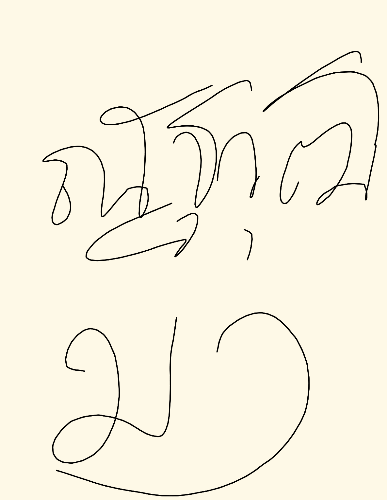 ณัฐวุฒิ
มา